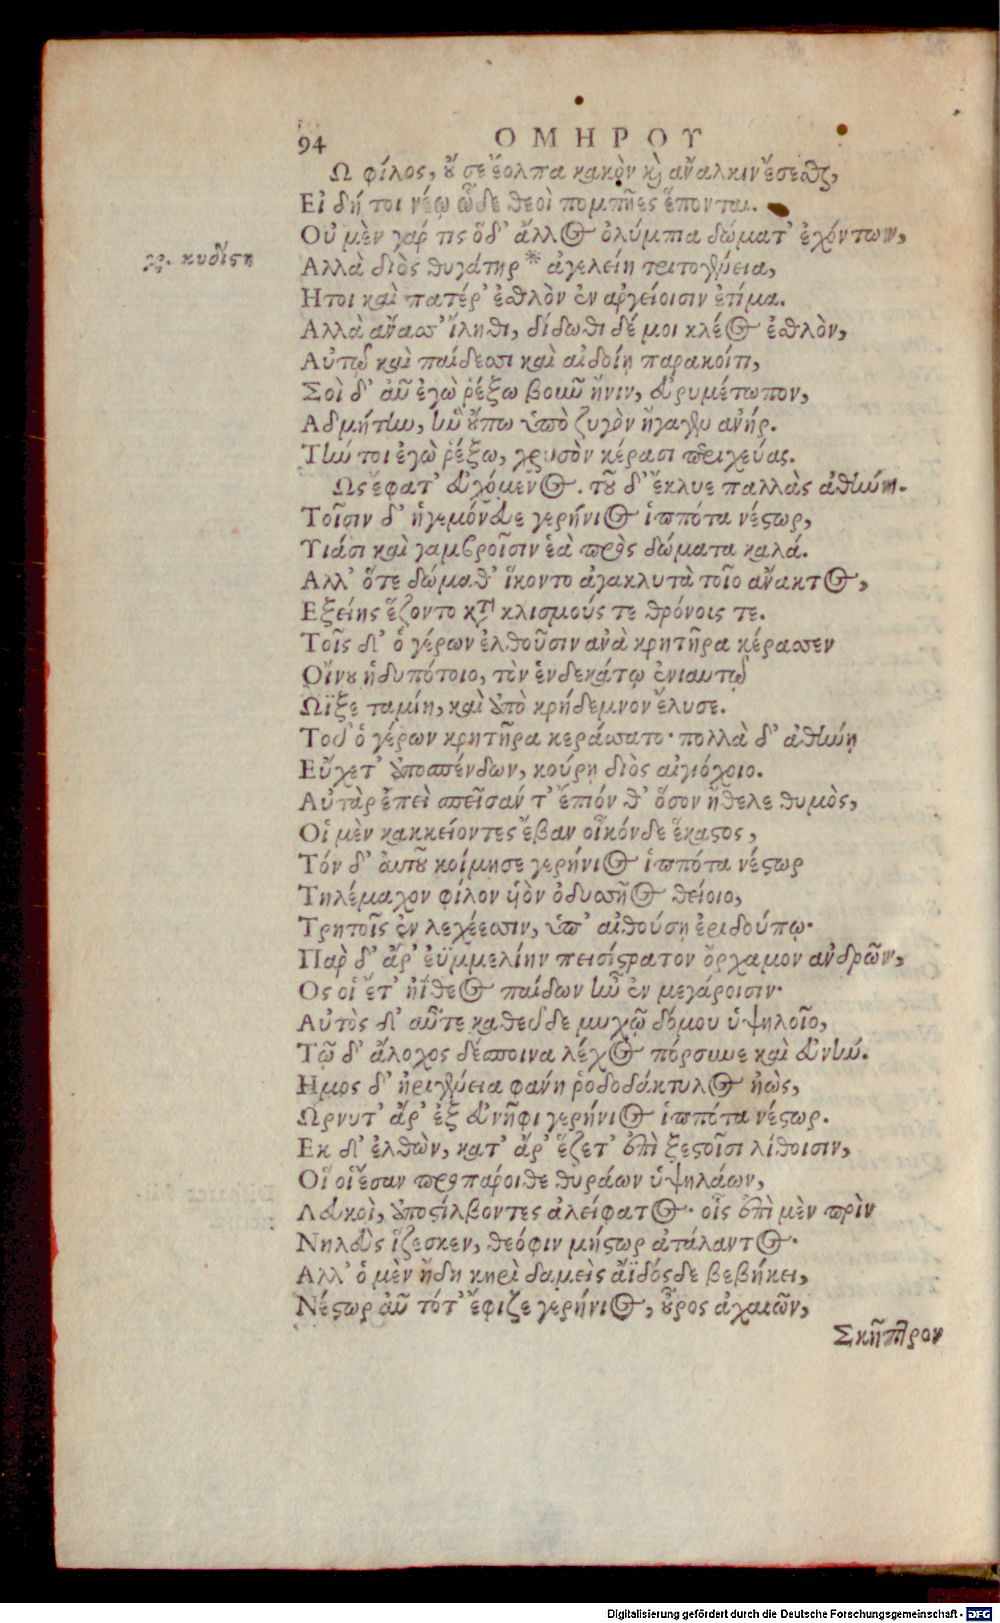 94 ΟΜΗΡΟΥ
Ω φίλος, οὔ σε ἔολπα κακὸν καὶ ἄναλκιν ἔσεσθαι,
Εἰ δή τοι νέῳ ὧδε θεοὶ πομπῆες ἕπονται.
Οὐ μὲν γάρ τις ὅδ' ἄλλος ὀλύμπια δώματ' ἐχόντων,
γρ. κυδίστη
Αλλὰ διὸς θυγάτηρ * ἀγελείη τριτογένεια,
Ητοι καὶ πατέρ' ἐσθλὸν ἐν ἀργείοισιν ἐτίμα.
Αλλὰ ἄνασσ' ἵληθι, δίδωθι δέ μοι κλέος ἐσθλὸν,
Αὐτῷ καὶ παίδεσσι καὶ αἰδοίῃ παρακοίτι,
Σοὶ δ' αὖ ἐγὼ ῥέξω βοῦν ἤνιν, εὐρυμέτωπον,
Αδμήτην, ἣν οὔπω ὑπὸ ζυγὸν ἤγαγεν ἀνήρ.
Τήν τοι ἐγὼ ῥέξω, χρυσὸν κέρασι περιχεύας.
Ως ἔφατ' εὐχόμενος. τοῦ δ' ἔκλυε παλλὰς ἀθήνη.
Τοῖσιν δ' ἡγεμόνευε γερήνιος ἱππότα νέστωρ,
Υιάσι καὶ γαμβροῖσιν ἑὰ πρὸς δώματα καλά.
Αλλ' ὅτε δώμαθ' ἵκοντο ἀγακλυτὰ τοῖο ἄνακτος,
Εξείης ἕζοντο κατὰ κλισμούς τε θρόνοις τε.
Τοῖς δ' ὁ γέρων ἐλθοῦσιν ἀνὰ κρητῆρα κέρασσεν
Οἴνου ἡδυπότοιο, τὸν ἑνδεκάτῳ ἐνιαυτῷ
Ωϊξε ταμίη, καὶ ἀπὸ κρήδεμνον ἔλυσε.
Τοῦ ὁ γέρων κρητῆρα κεράσσατο· πολλὰ δ' ἀθήνῃ
Εὔχετ' ἀποσπένδων, κούρῃ διὸς αἰγιόχοιο.
Αὐτὰρ ἐπεὶ σπεῖσάν τ' ἔπιόν θ' ὅσον ἤθελε θυμὸς,
Οἱ μὲν κακκείοντες ἔβαν οἶκόνδε ἕκαστος,
Τόν δ' αὐτοῦ κοίμησε γερήνιος ἱππότα νέστωρ
Τηλέμαχον φίλον υἱὸν ὀδυσσῆος θείοιο,
Τρητοῖς ἐν λεχέεσσιν, ὑπ' αἰθούσῃ ἐριδούπῳ·
Παρ δ' ἄρ' ἐϋμμελίην πεισίστρατον ὄρχαμον ἀνδρῶν,
Ος οἱ ἔτ' ἠΐθεος παίδων ἦν ἐν μεγάροισιν·
Αὐτὸς δ' αὖτε καθεῦδε μυχῷ δόμου ὑψηλοῖο,
Τῷ δ' ἄλοχος δέσποινα λέχος πόρσυνε καὶ εὐνήν.
Ημος δ' ἠριγένεια φάνη ῥοδοδάκτυλος ἠὼς,
Ωρνυτ' ἄρ' ἐξ εὐνῆφι γερήνιος ἱππότα νέστωρ.
Εκ δ' ἐλθὼν, κατ' ἄρ' ἕζετ' ἐπὶ ξεστοῖσι λίθοισιν,
Οἵ οἱ ἔσαν προπάροιθε θυράων ὑψηλάων,
Λευκοὶ, ἀποστίλβοντες ἀλείφατος· οἷς ἐπὶ μὲν πρὶν
Νηλεὺς ἵζεσκεν, θεόφιν μήστωρ ἀτάλαντος·
Αλλ' ὁ μὲν ἤδη κηρὶ δαμεὶς ἄϊδόσδε βεβήκει,
Νέστωρ αὖ τότ' ἔφιζε γερήνιος, οὖρος ἀχαιῶν,
Σκῆπτρον
Digitalisierung gefördert durch die Deutsche Forschungsgemeinschaft - DFG